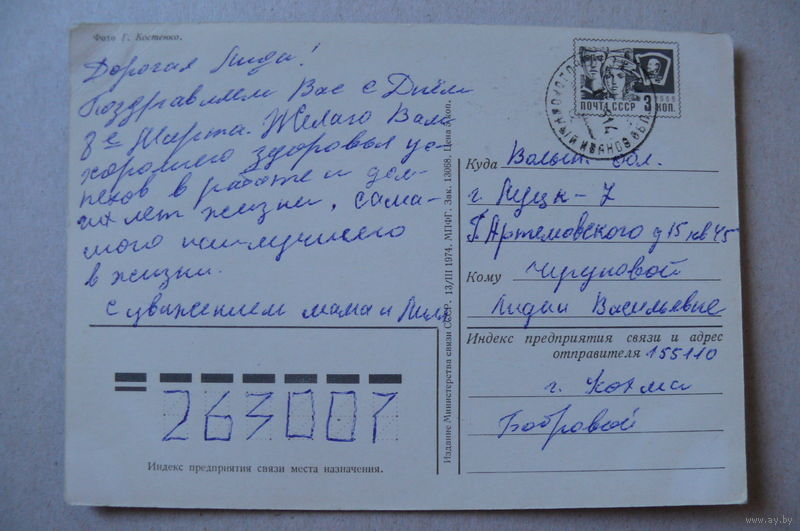 Фото Г. Костенко.
Дорогая Лида!
Поздравляем Вас с Днём
8е Марта. Желаю Вам
хорошего здоровья ус-
пехов в работе и дол-
гих лет жизни, сама-
мого наилучшего
в жизни.
с уважением мама и Лиля
263007
Индекс предприятия связи места назначения.
Издание Министерства связи СССР. 13/III 1974. МПФГ. Зак. 13068. Цена 5 коп.
ПОЧТА СССР 3 КОП.
1966
Куда Волын обл.
г. Луцк-7
Г. Артемовского д 15 кв 45
Кому
Лидии Васильевне
Индекс предприятия связи и адрес
отправителя 155110
г. Кохма
Бобровой
www.ay.by